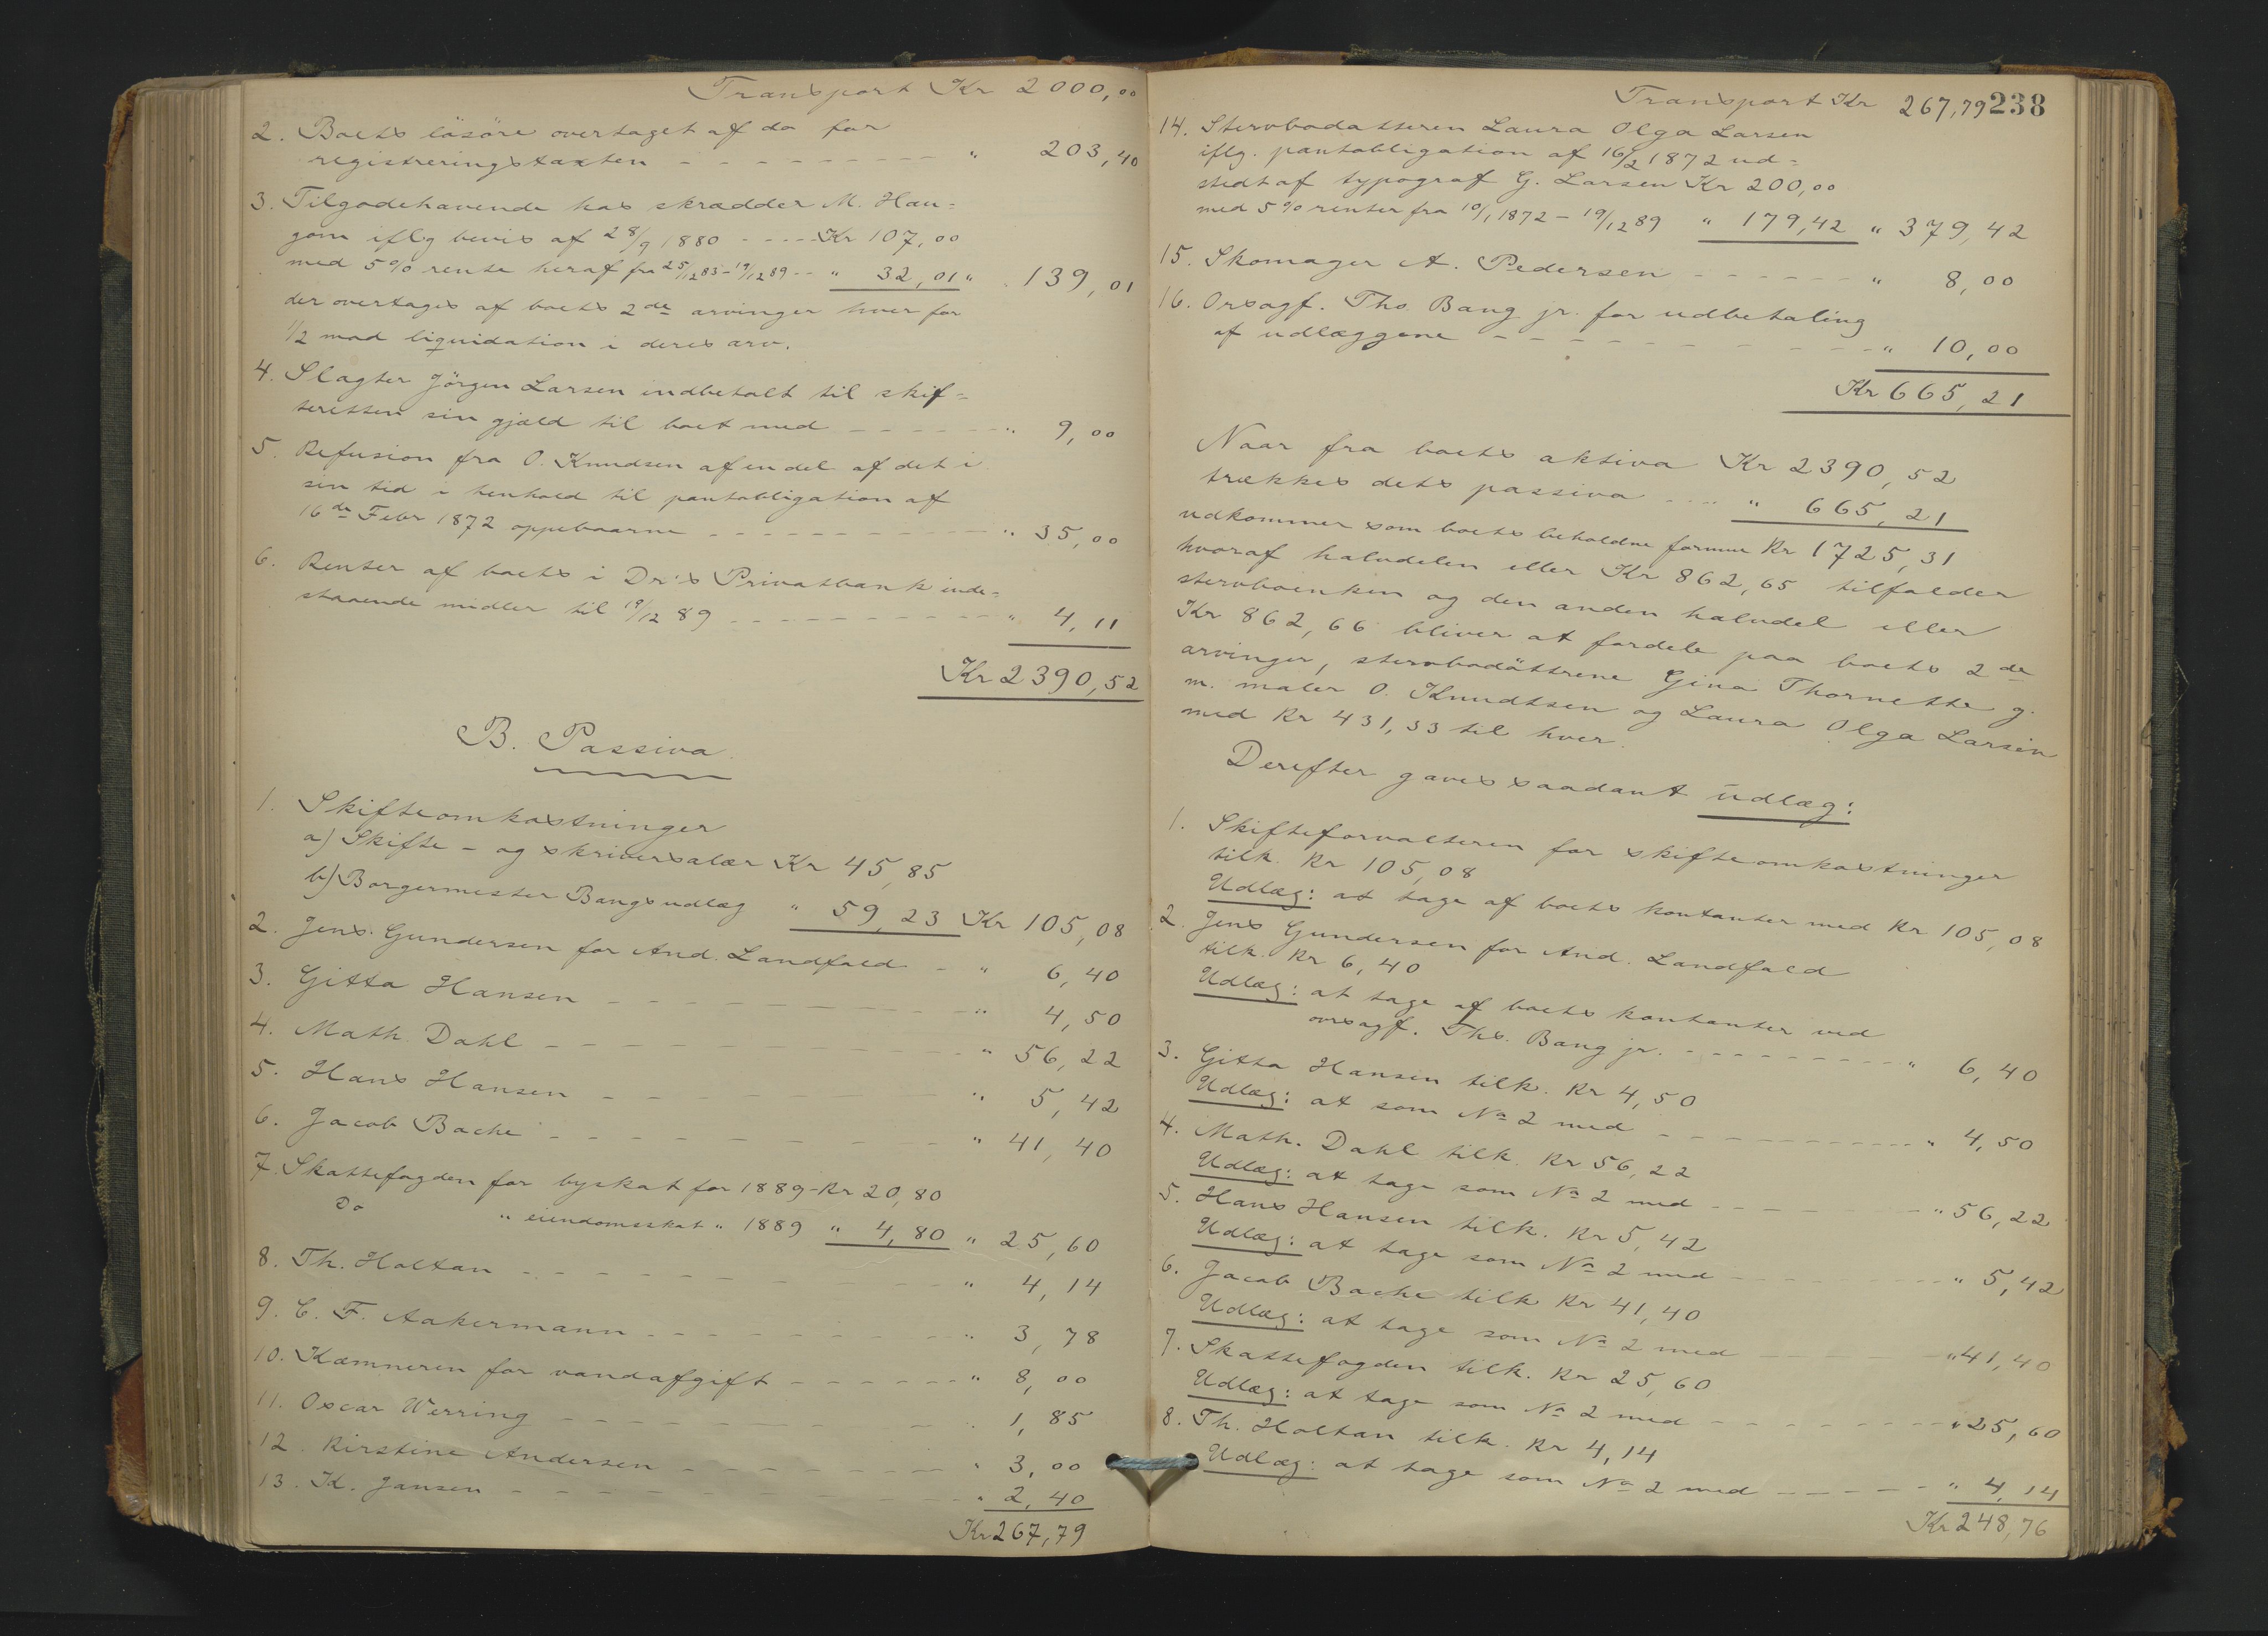 Transport Kr 2000,00
2. Boets lösöre overtaget af do for
registreringstaxten - - - - - - - - - " 203,40
3. Tilgodehavende hos skrædder M. Hau=
gom iflg bevis af 28/9 1880 - - - - Kr 107,00
med 5% rente heraf fra 25/12 83 - 19/12 89 - - " 32,01 " 139,01
der overtages af boets 2de arvinger hver for
1/2 mod liquidation i deres arv.
4. Slagter Jörgen Larsen indbetalt til skif=
teretten sin gjæld til boet med - - - - - - " 9,00
5. Refusion fra O. Knudsen af en del af det i
sin tid i henhold til pantobligation af
16de Febr 1872 oppebaarne - - - - - - - - - - " 35,00
6. Renter af boets i Dr's Privatbank inde=
staaende midler til 19/12 89 - - - - - - - - - - " 4,11
Kr 2390,52
B. Passiva.
1. Skifteomkostninger
a) Skifte- og skriversalær Kr 45,85
b) Borgermester Bangs udlæg " 59,23 Kr 105,08
2. Jens Gundersen for And. Landfald - " 6,40
3. Gitta Hansen - - - - - - - - - - " 4,50
4. Math. Dahl - - - - - - - - - - - " 56,22
5. Hans Hansen - - - - - - - - - - " 5,42
6. Jacob Bache - - - - - - - - - - " 41,40
7. Skattefogden for byskat for 1889 - Kr 20,80
Do " eiendomsskat " 1889 " 4,80 " 25,60
8. Th. Holtan - - - - - - - - - - - " 4,14
9. C. F. Aakermann - - - - - - - - - " 3,78
10. Kæmneren for vandafgift - - - - - - " 8,00
11. Oscar Werring - - - - - - - - - - " 1,85
12. Kirstine Andersen - - - - - - - - " 3,00
13. K. Jansen - - - - - - - - - - - " 2,40
Kr 267,79
Transport Kr 267,79 238
14. Stervbodatteren Laura Olga Larsen
iflg. pantobligation af 16/2 1872 ud=
stedt af typograf G. Larsen Kr 200,00
med 5% renter fra 10/1 1872 - 19/12 89 " 179,42 " 379,42
15. Skomager A. Pedersen - - - - - - - " 8,00
16. Orsagf. Ths. Bang jr. for udbetaling
af udlæggene - - - - - - - - - - - " 10,00
Kr 665,21
Naar fra boets aktiva Kr 2390,52
trækkes dets passiva - - - " 665,21
udkommer som boets beholdne formue Kr 1725,31
hvoraf halvdelen eller Kr 862,65 tilfalder
stervboenken og den anden halvdel eller
Kr 862,66 bliver at fordele paa boets 2de
arvinger, stervbodöttrene Gina Thornette g.
m. maler O. Knudtsen og Laura Olga Larsen
med Kr 431,33 til hver.
Derefter gaves saadant udlæg:
1. Skifteforvalteren for skifteomkostninger
tilk. Kr 105,08
Udlæg: at tage af boets kontanter med Kr 105,08
2. Jens Gundersen for And. Landfald
tilk. Kr 6,40
Udlæg: at tage af boets kontanter ved
ovrsagf. Ths. Bang jr. - - - - - - - - - " 6,40
3. Gitta Hansen tilk. Kr 4,50
Udlæg: at som No 2 med - - - - - - - - - - " 4,50
4. Math. Dahl tilk. Kr 56,22
Udlæg: at tage som No 2 med - - - - - - - " 56,22
5. Hans Hansen tilk. Kr 5,42
Udlæg: at tage som No 2 med - - - - - - - " 5,42
6. Jacob Bache tilk Kr 41,40
Udlæg: at tage som No 2 med - - - - - - - " 41,40
7. Skattefogden tilk. Kr 25,60
Udlæg: at tage som No 2 med - - - - - - - - " 25,60
8. Th. Holtan tilk. Kr 4,14
Udlæg: at tage som No 2 med - - - - - " 4,14
Kr 248,76